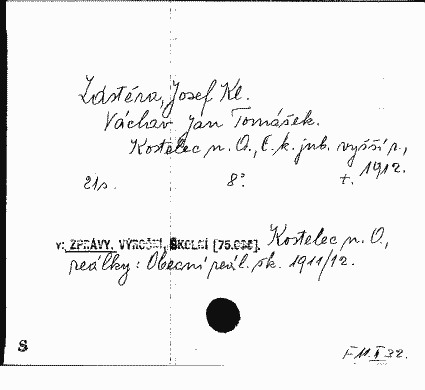 Zástěra, Josef Kl.
Václav Jan Tomášek.
Kostelec n. O., C. k. jub. vyšší r.,
1912.
21 s. 8°. t.
v: ZPRÁVY, VÝROČNÍ, ŠKOLNÍ Kostelec n. O.,
reálky: Obecní reál. šk. 1911/12.
S